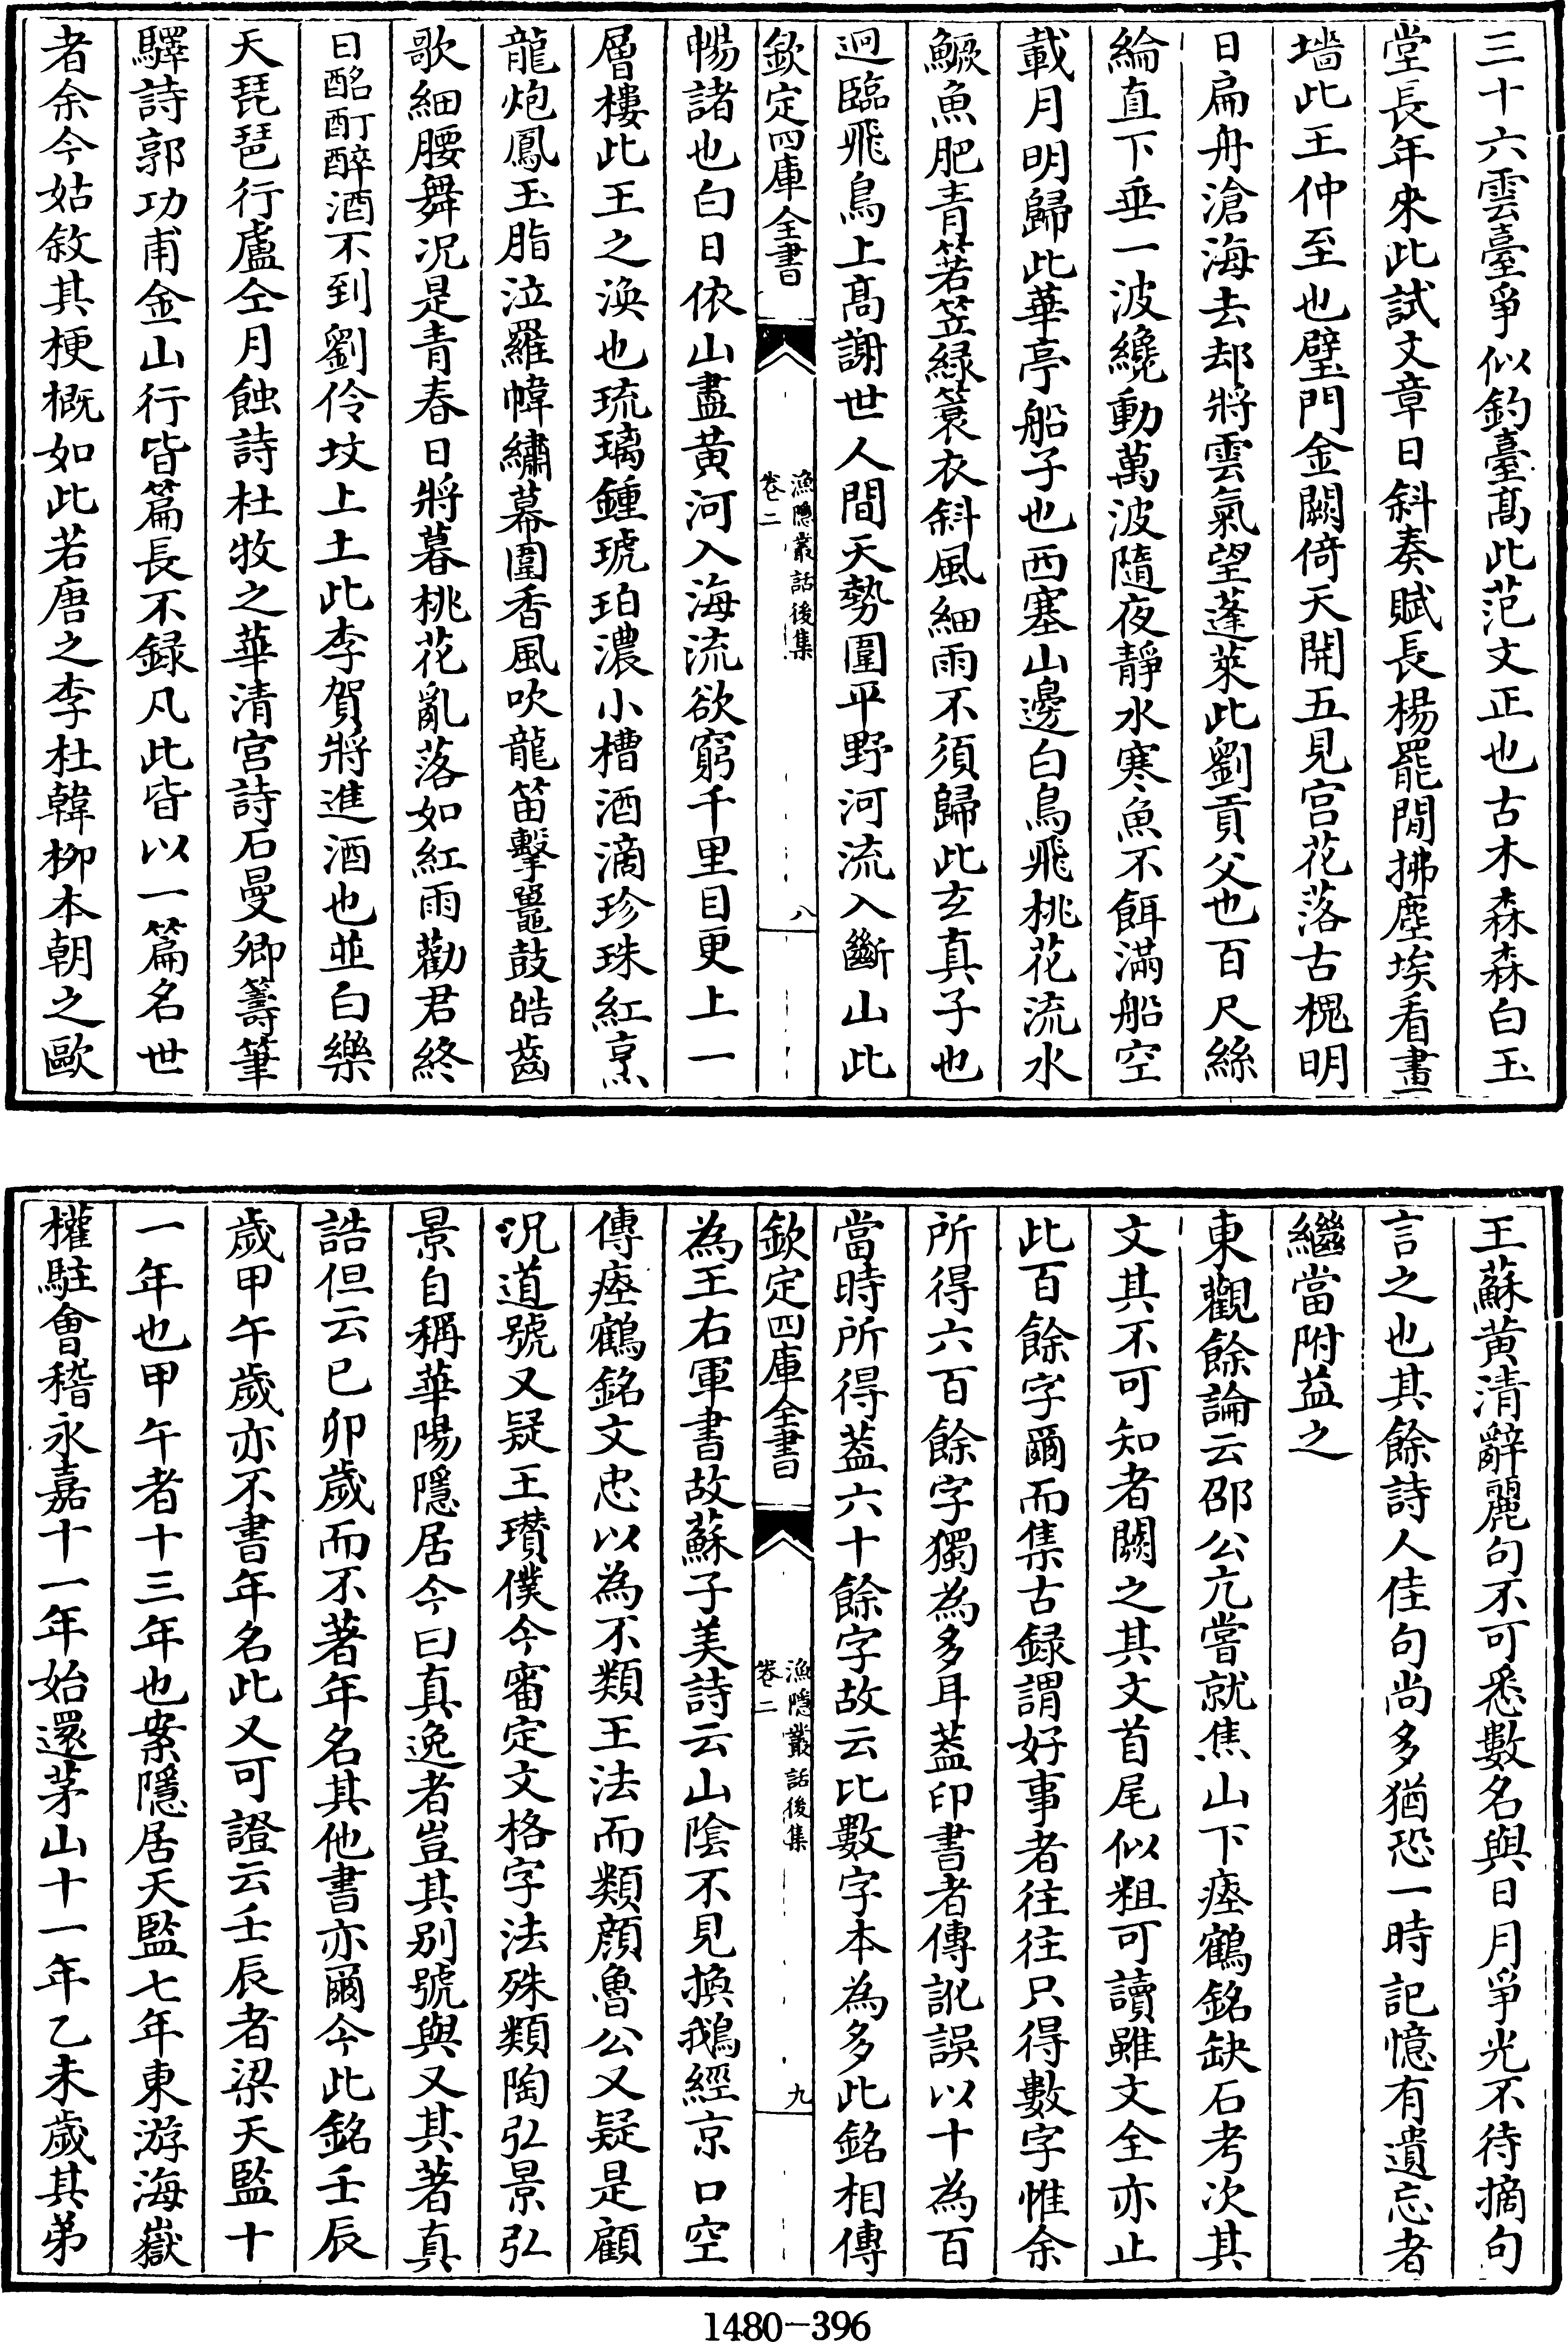 三十六雲臺爭似釣臺髙此范文正也古木森森白玉
堂長年來此試文章日斜奏賦長楊罷閒拂塵埃看畫
墻此王仲至也璧門金闕倚天開五見宫花落古槐明
日扁舟滄海去却將雲氣望蓬萊此劉貢父也百尺絲
綸直下垂一波纔動萬波隨夜靜水寒魚不餌滿船空
載月明歸此華亭船子也西塞山邊白鳥飛桃花流水
鱖魚肥青箬笠緑蓑衣斜風細雨不須歸此玄真子也
迥臨飛鳥上髙謝世人間天勢圍平野河流入斷山此
欽定四庫全書
漁隱叢話後集
卷二
八
暢諸也白日依山盡黄河入海流欲窮千里目更上一
層樓此王之渙也琉璃鍾琥珀濃小槽酒滴珍珠紅烹
龍炮鳳玉脂泣羅幃繡幕圍香風吹龍笛擊鼉鼓皓齒
歌細腰舞况是青春日將暮桃花亂落如紅雨勸君終
日酩酊醉酒不到劉伶坟上土此李賀將進酒也並白樂
天琵琶行盧仝月蝕詩杜牧之華清宫詩石曼卿籌筆
驛詩郭功甫金山行皆篇長不録凡此皆以一篇名世
者余今姑敘其梗概如此若唐之李杜韓柳本朝之歐
王蘇黄清辭麗句不可悉數名與日月爭光不待摘句
言之也其餘詩人佳句尚多猶恐一時記憶有遺忘者
繼當附益之
東觀餘論云邵公亢嘗就焦山下瘞鶴銘缺石考次其
文其不可知者闕之其文首尾似粗可讀雖文全亦止
此百餘字爾而集古録謂好事者往往只得數字惟余
所得六百餘字獨為多耳葢印書者傳訛誤以十為百
當時所得葢六十餘字故云比數字本為多此銘相傳
欽定四庫全書
漁隱叢話後集
卷二
九
為王右軍書故蘇子美詩云山隂不見換鵝經京口空
傳瘞鶴銘文忠以為不類王法而類顔魯公又疑是顧
况道號又疑王瓚僕今審定文格字法殊類陶弘景弘
景自稱華陽隱居今曰真逸者豈其别號與又其著真
誥但云已卯歲而不著年名其他書亦爾今此銘壬辰
歲甲午歲亦不書年名此又可證云壬辰者梁天監十
一年也甲午者十三年也案隱居天監七年東游海嶽
權駐會稽永嘉十一年始還茅山十一年乙未歲其弟
1480-396